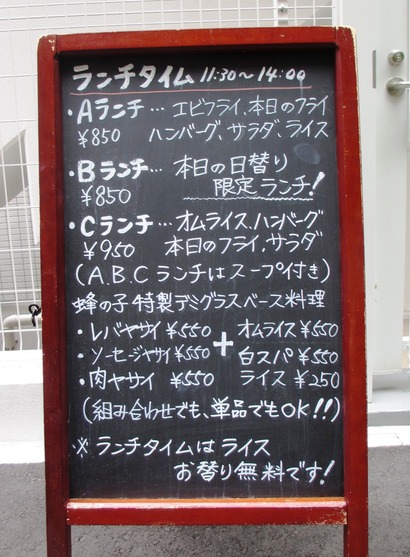 ランチタイム 11:30〜14:00
・Aランチ… エビフライ、本日のフライ
¥850 ハンバーグ、サラダ、ライス
・Bランチ… 本日の日替り
¥850 限定ランチ!
・Cランチ…オムライス、ハンバーグ
¥950 本日のフライ、サラダ
(A.B.Cランチはスープ付き)
蜂の子特製デミグラスベース料理
・レバヤサイ ¥550 + オムライス ¥550
・ソーセージヤサイ ¥550 白スパ ¥550
・肉ヤサイ ¥550 ライス ¥250
(組み合わせでも、単品でもOK!!)
※ ランチタイムは ライス
お替り無料です!